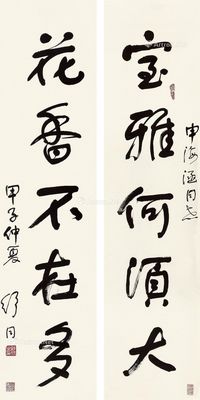 室雅何須大
申海涵同志
花香不在多
甲子仲夏
舒同